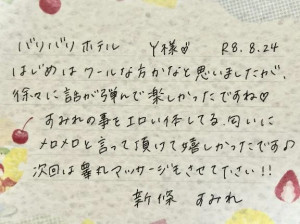 バリバリホテル Y様♡ R8.8.24
はじめはクールな方かなと思いましたが、
徐々に話が弾んで楽しかったですね♡
すみれの事をエロい体してる、匂いに
メロメロと言って頂けて嬉しかったです♪
次回は睾丸マッサージもさせて下さい!!
新條 すみれ